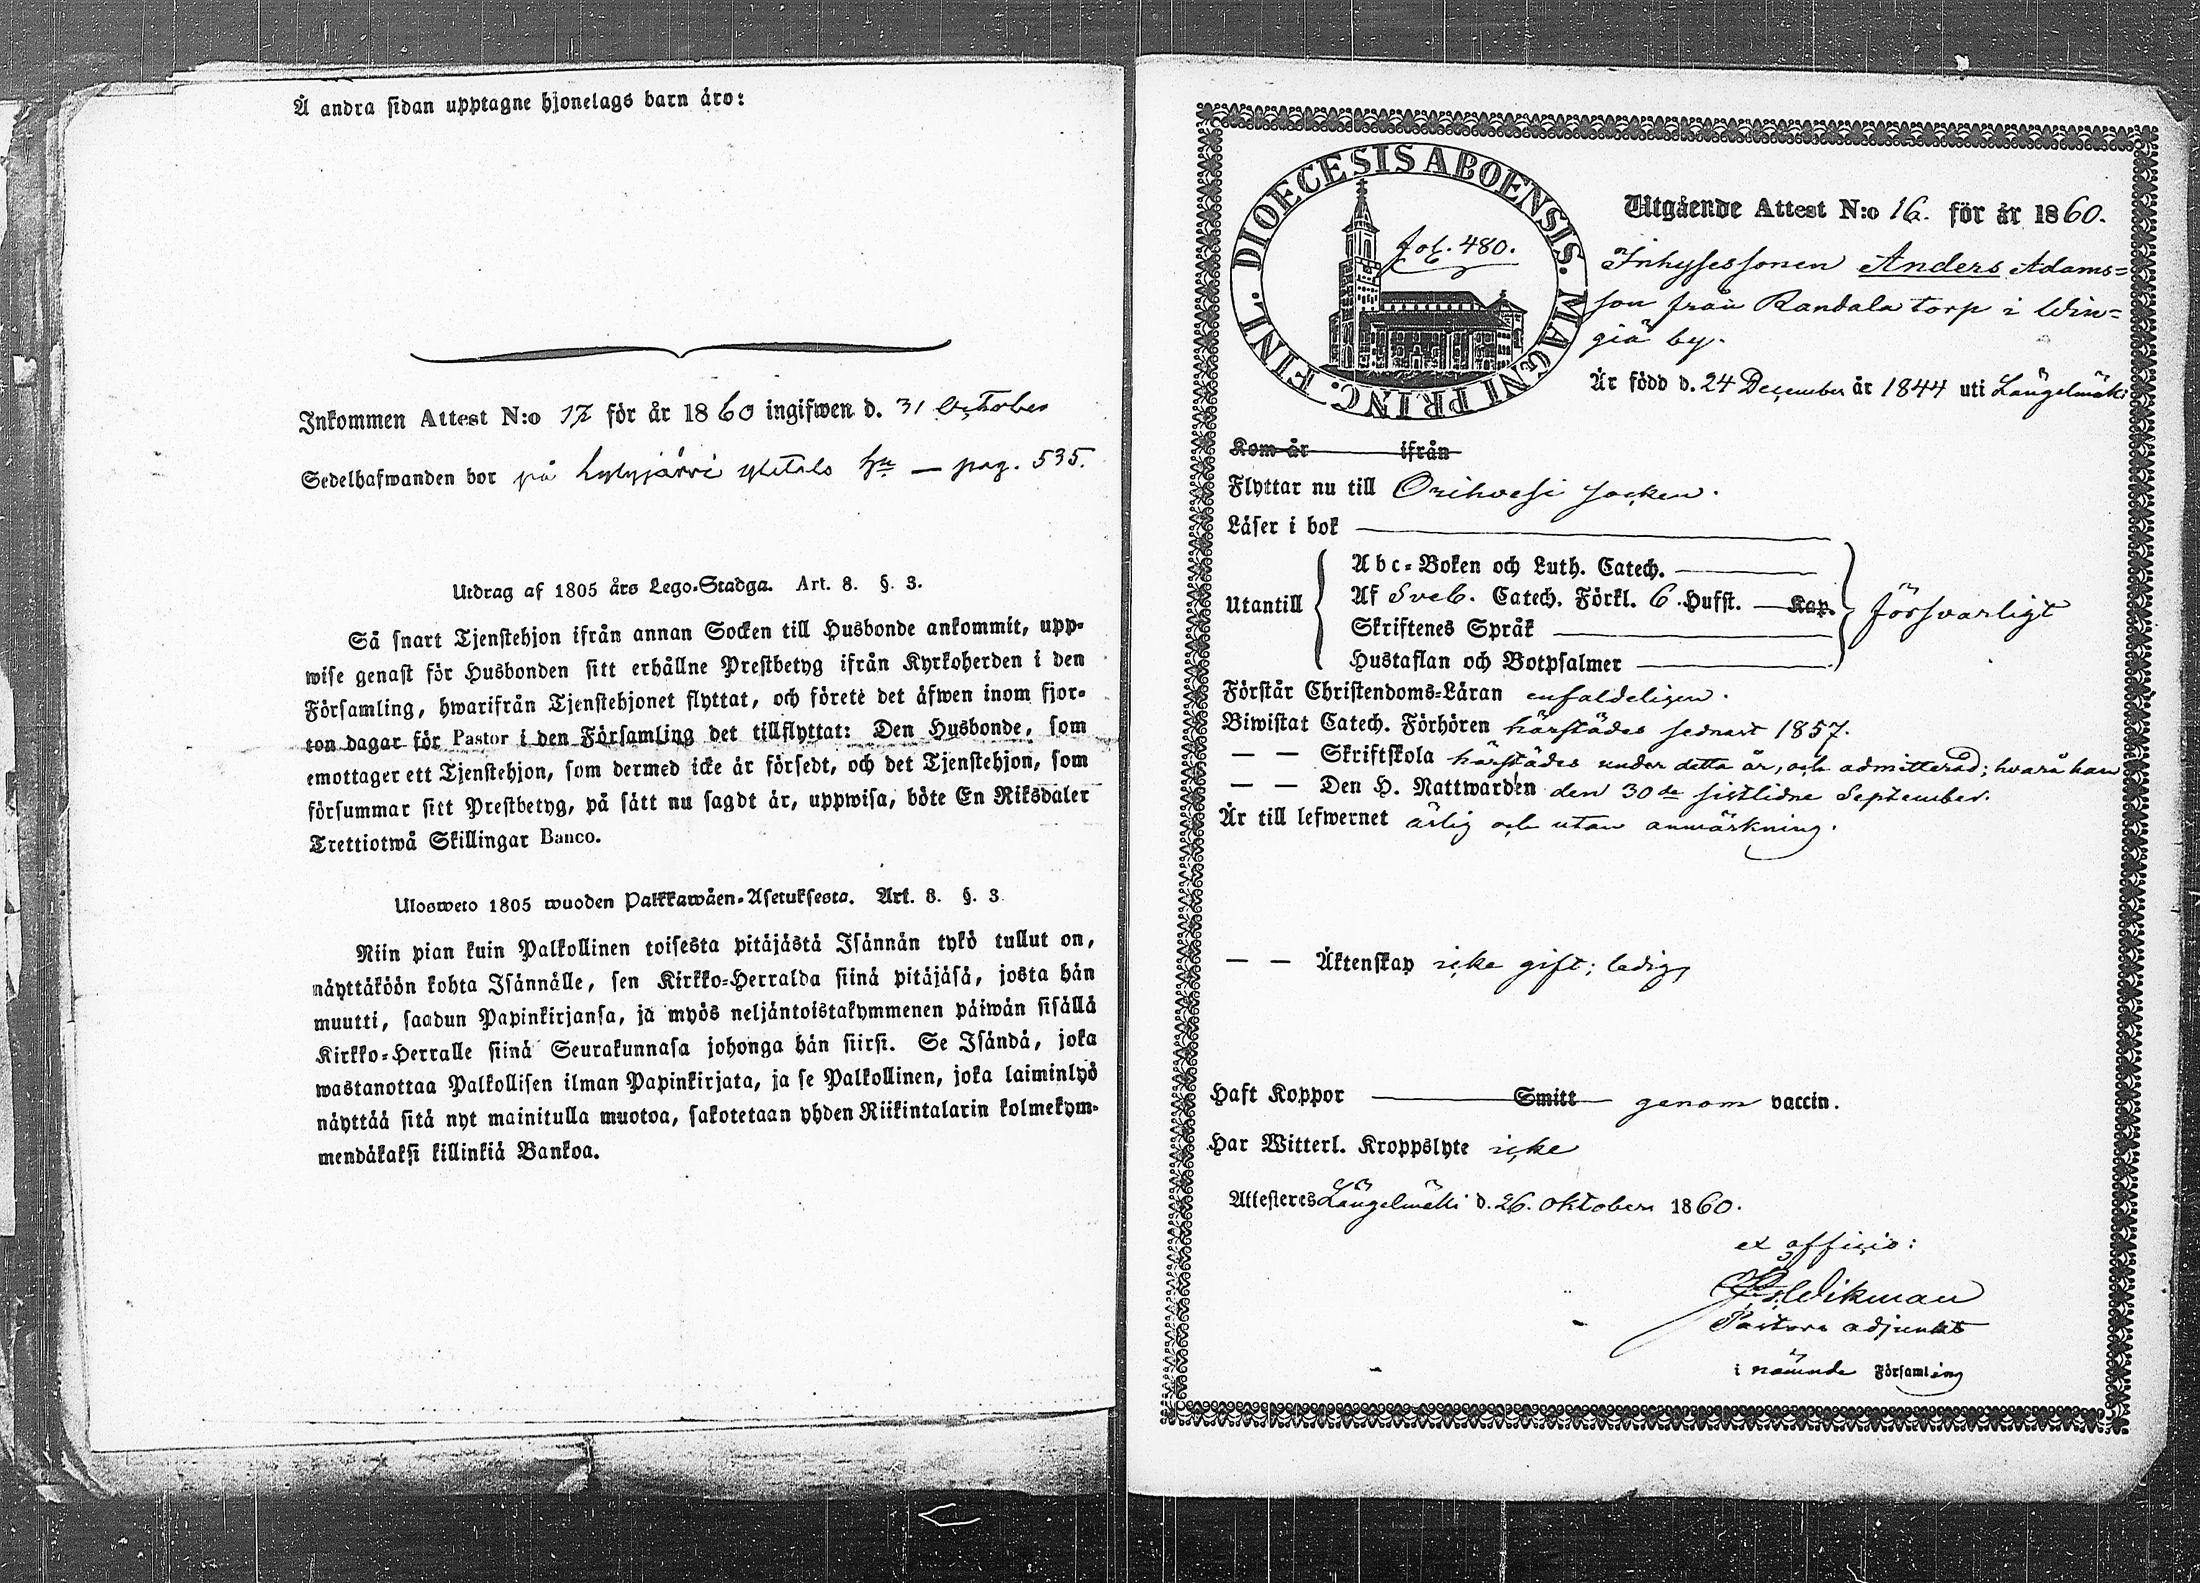 Å andra sidan upptagne hjonelags barn äro:
Inkommen Attest N:o 17 för år 1860 ingifwen d. 31 October
Sedelhafwanden bor på Lylyjärvi ytetals hn — pag. 535.
Utdrag af 1805 års Lego-Stadga. Art. 8. §. 3.
Så snart Tjenstehjon ifrån annan Socken till Husbonde ankommit, upp-
wise genast för Husbonden sitt erhållne Prestbetyg ifrån Kyrkoherden i den
Församling, hwarifrån Tjenstehjonet flyttat, och förete det äfwen inom fjor-
ton dagar för Pastor i den Församling det tillflyttat: Den Husbonde, som
emottager ett Tjenstehjon, som dermed icke är försedt, och det Tjenstehjon, som
försummar sitt Prestbetyg, på sätt nu sagdt är, uppwisa, böte En Riksdaler
Trettiotwå Skillingar Banco.
Ulosweto 1805 wuoden Palkkawäen-Asetuksesta. Art. 8. §. 3
Niin pian kuin Palkollinen toisesta pitäjästä Isännän tykö tullut on,
näyttäköön kohta Isännälle, sen Kirkko-Herralda siinä pitäjäsä, josta hän
muutti, saadun Papinkirjansa, ja myös neljäntoistakymmenen päiwän sisällä
Kirkko-Herralle siinä Seurakunnasa johonga hän siirsi. Se Isändä, joka
wastanottaa Palkollisen ilman Papinkirjata, ja se Palkollinen, joka laiminlyö
näyttää sitä nyt mainitulla muotoa, sakotetaan yhden Riikintalarin kolmekym-
mendäkaksi killinkiä Bankoa.
DIOECESIS ABOENSIS. MAGNI PRINC. FINL.
fol. 480.
Utgående Attest N:o 16. för år 1860.
Inhysessonen Anders Adams=
son från Randala torp i Win=
giä by.
Är född d. 24 December år 1844 uti Längelmäki
Kom år ifrån
Flyttar nu till Orihvesi socken.
Läser i bok
Utantill
Abc-Boken och Luth. Catech.
Af Sveb. Catech. Förkl. 6 Hufst. Kap.
Skriftenes Språk
Hustaflan och Botpsalmer
försvarligt
Förstår Christendoms-Läran enfaldeligen.
Biwistat Catech. Förhören härstädes sednast 1857.
— — Skriftskola härstädes under detta år, och admitterad; hvarå han
— — Den H. Nattwarden den 30de sistlidne September.
Är till lefwernet ärlig och utan anmärkning.
— — Äktenskap icke gift; ledig,
Haft Koppor Smitt genom vaccin.
Har Witterl. Kroppslyte icke
Attesteres Längelmäki d. 26. Oktober 1860.
ex officio:
Wikman
Pastors adjunkt
i nämnde Församling